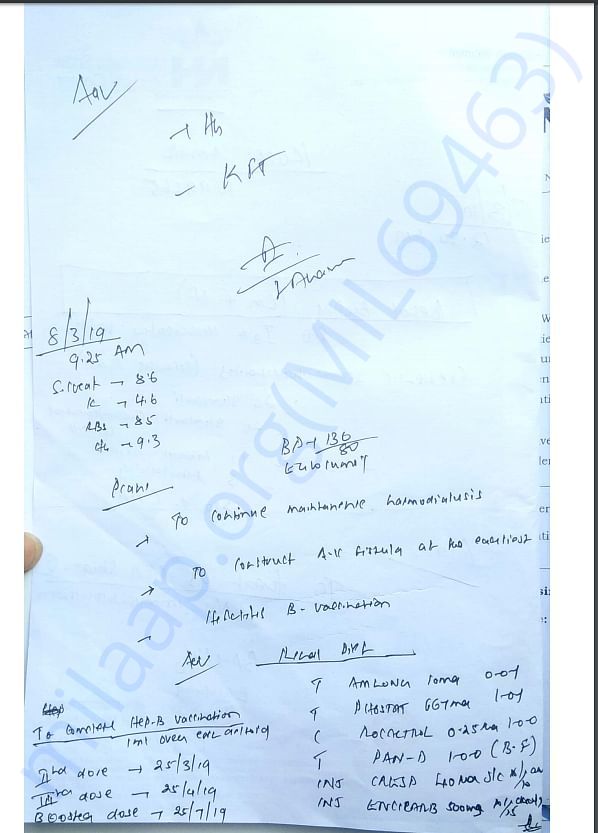 Adv
→ Hb
- KFT
8/3/19
9.25 AM
S.creat → 8.6
K → 4.6
RBS → 85
Hb → 9.3
BP → 130/80
Plan
→ To continue maintenance haemodialysis
→ To construct A-V fistula at the earliest
→ Hepatitis B- vaccination
Adv Renal Diet
T AMLONG 10mg 0-0-1
T PHOSTAT 667mg 1-0-1
C ROCALTROL 0.25 1-0-0
T PAN-D 1-0-0 (B-F)
INJ CRESP 40 S/C
INJ ENCICARB 500mg
To complete Hep-B Vaccination
1ml over each deltoid
IInd dose → 25/3/19
IIIrd dose → 25/4/19
Booster dose → 25/7/19
milaap.org(MIL69463)